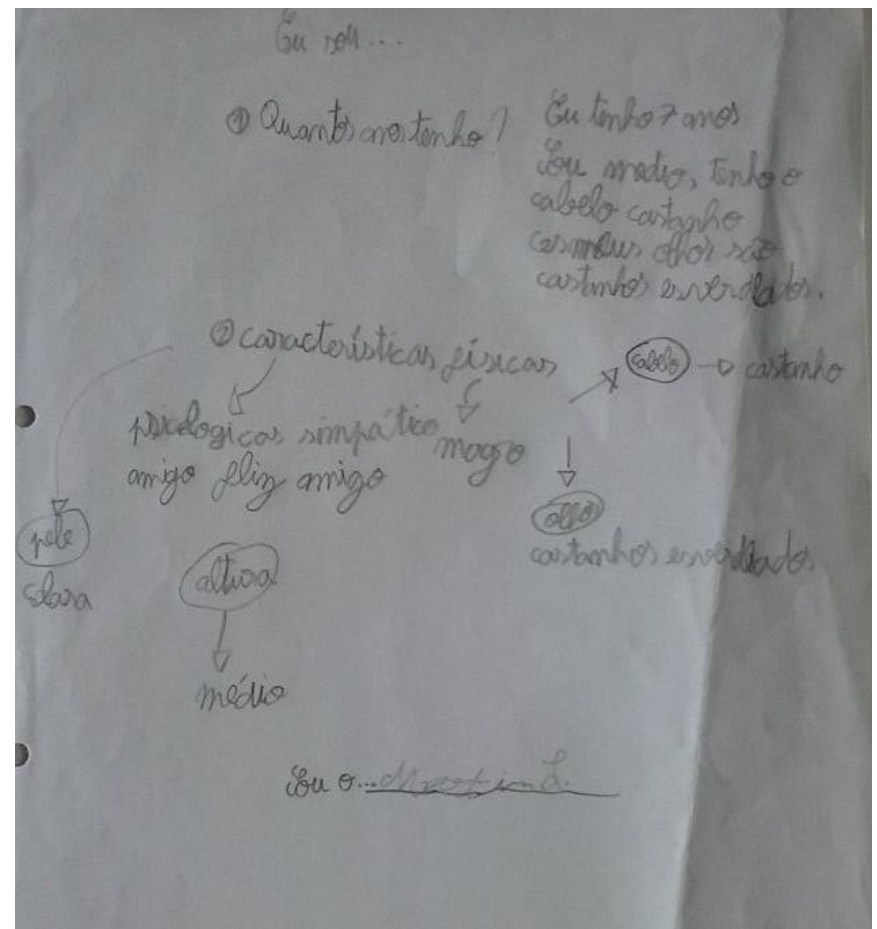 Eu sou...
① Quantos anos tenho?
Eu tenho 7 anos
Sou medio, tenho o
cabelo castanho
os meus olhos são
castanhos esverdeados.
② características físicas
cabelo → castanho
psicologicas simpático
amigo feliz amigo
magro
olhos
castanhos esverdeados
pele
clara
altura
médio
Sou o... Martim L.